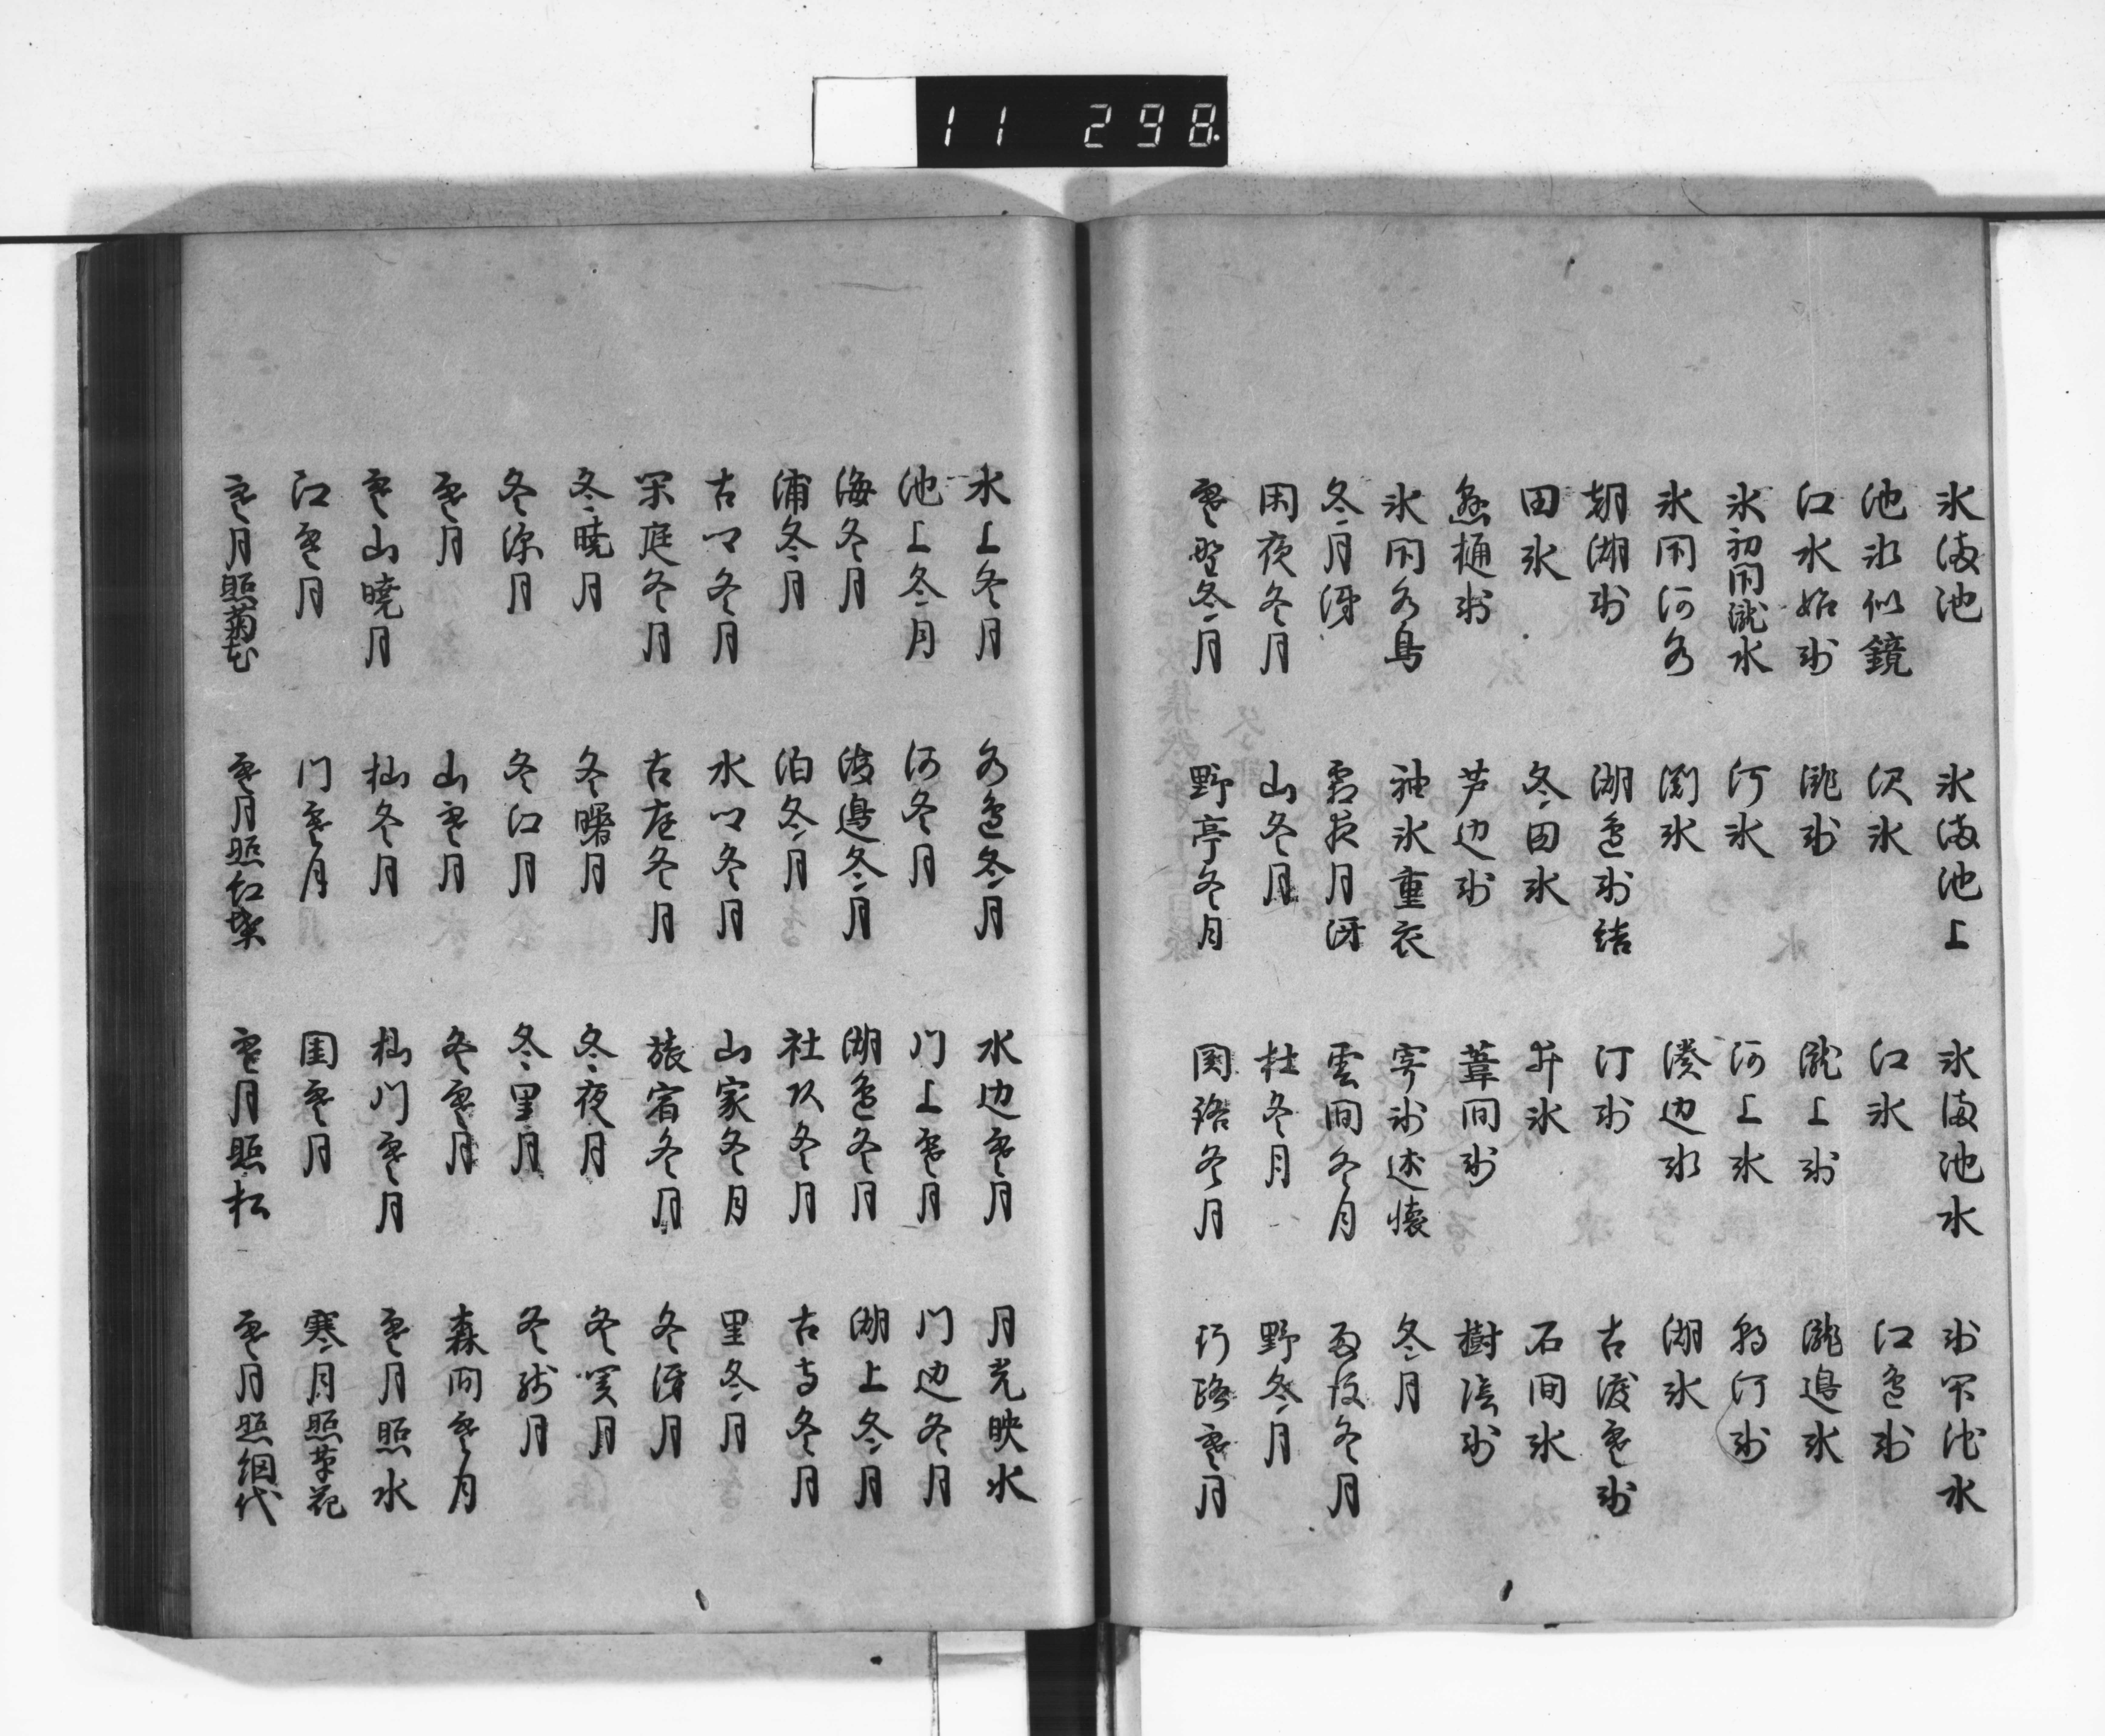 11 298
氷満池 氷満池上 氷満池水 氷閉池水
池氷似鏡 沢氷 江氷 江辺氷
江水始氷 滝氷 滝上氷 滝辺氷
氷初閉滝水 河氷 河上氷 河氷
氷閉河水 澗氷 湊辺氷 湖氷
朝湖氷 湖辺氷結 汀氷 古渡寒氷
田氷 冬田氷 井氷 石間氷
懸樋氷 芦辺氷 葦間氷 樹陰氷
氷閉水鳥 袖氷重衣 寄氷述懐 冬月
冬月冴 霜夜月冴 雲間冬月 雨後冬月
閑夜冬月 山冬月 杜冬月 野冬月
寒野冬月 野亭冬月 関路冬月 行路寒月
氷上冬月 水辺冬月 水辺寒月 月光映氷
池上冬月 河冬月 門上寒月 門辺冬月
海冬月 海辺冬月 湖辺冬月 湖上冬月
浦冬月 泊冬月 社頭冬月 古寺冬月
古郷冬月 水郷冬月 山家冬月 里冬月
閑庭冬月 古屋冬月 旅宿冬月 冬浮月
冬暁月 冬曙月 冬夜月 冬関月
冬深月 冬江月 冬里月 冬残月
寒月 山寒月 冬寒月 森間寒月
寒山暁月 杣冬月 杣門寒月 寒月照水
江寒月 門寒月 閨寒月 寒月照草花
寒月照菊花 寒月照紅葉 寒月照松 寒月照網代